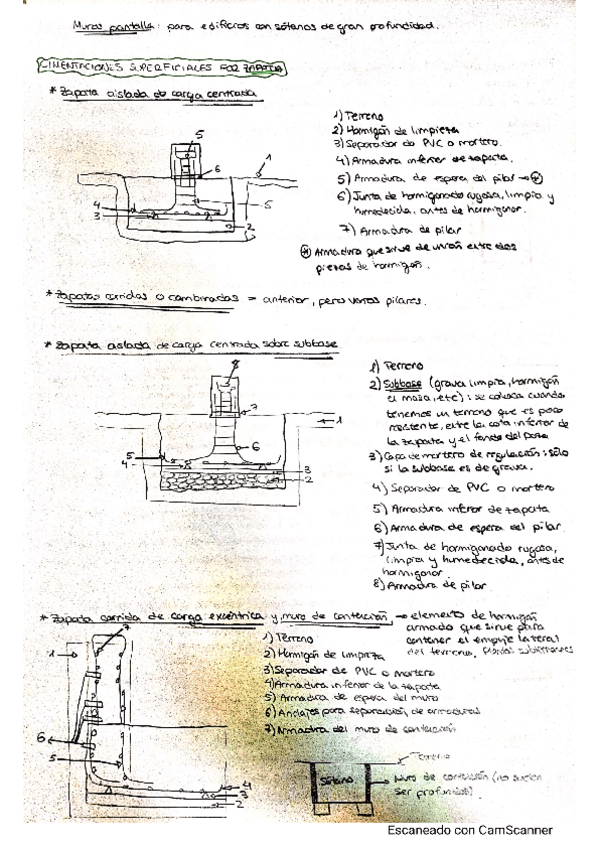 Muros pantalla: para edificios con sótanos de gran profundidad.
CIMENTACIONES SUPERFICIALES POR ZAPATA
* Zapata aislada de carga centrada
1) Terreno
2) Hormigón de limpieza
3) Separador de PVC o mortero.
4) Armadura inferior de zapata.
5) Armadura de espera del pilar → (*)
6) Junta de hormigonado rugosa, limpia y
humedecida, antes de hormigonar.
7) Armadura de pilar
(*) Armadura que sirve de unión entre dos
piezas de hormigón.
5
6
1
4
3
5
2
* Zapatas corridas o combinadas = anterior, pero varios pilares.
* Zapata aislada de carga centrada sobre subbase
8
7
1
6
5
4
3
2
1) Terreno
2) Subbase (grava limpia, hormigón
en masa, etc): se coloca cuando
tenemos un terreno que es poco
resistente, entre la cota inferior de
la zapata y el fondo del pozo
3) Capa de mortero de regulación: sólo
si la subbase es de grava.
4) Separador de PVC o mortero
5) Armadura inferior de zapata
6) Armadura de espera del pilar.
7) Junta de hormigonado rugosa,
limpia y humedecida, antes de
hormigonar
8) Armadura de pilar.
* Zapata corrida de carga excéntrica y muro de contención, → elemento de hormigón
armado que sirve para
contener el empuje lateral
del terreno. Plantas subterráneas
1) Terreno
2) Hormigón de limpieza
3) Separador de PVC o mortero
4) Armadura inferior de la zapata
5) Armadura de espera del muro
6) Anclajes para separación de armaduras
7) Armadura del muro de contención
7
1
6
5
4
3
2
Terreno
Sótano
Muro de contención (no suelen
ser profundos)
Escaneado con CamScanner